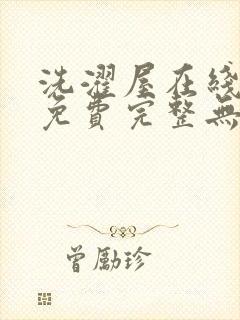 洗濯屋在线
免費完整無
曾勵珍